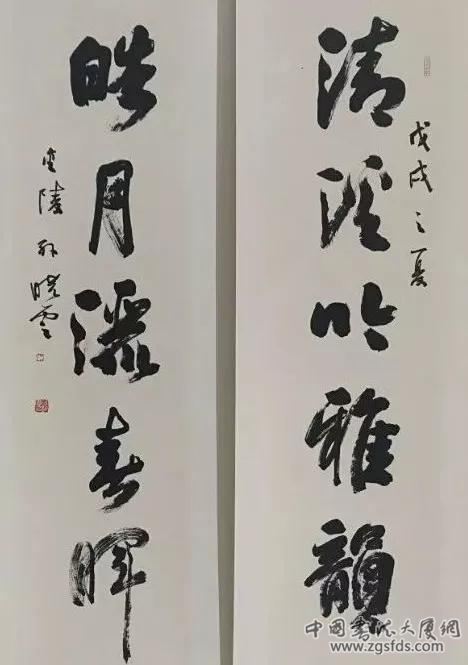 清溪吟雅韻
戊戌之夏
皓月灑春暉
金陵孙晓云
中国书法大厦網
www.zgsfds.com